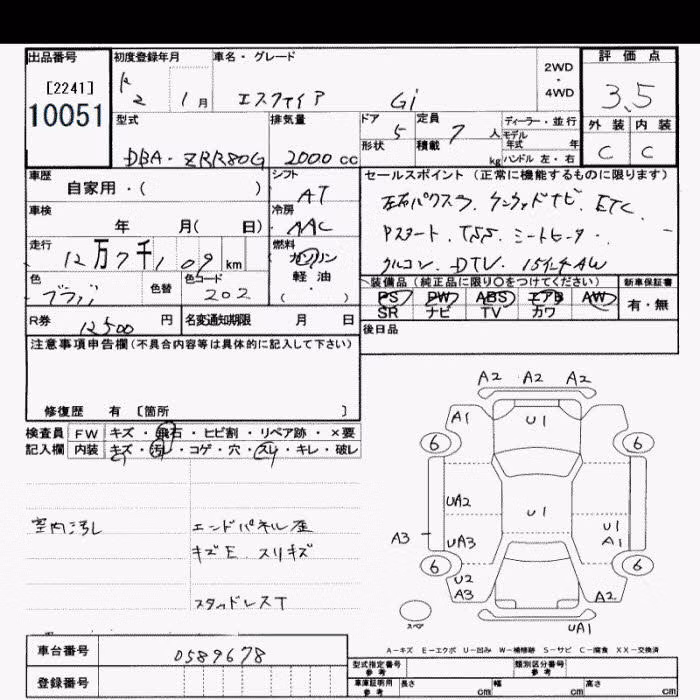 出品番号
[2241]
10051
初度登録年月
R2 1月
車名・グレード
エスクァイア Gi
2WD
・
4WD
評価点
3.5
外装 内装
C C
型式
DBA-ZRR80G
排気量
2000 cc
ドア 5
形状
定員 7 人
積載 kg
ディーラー・並行
モデル
年式 年
ハンドル 左・右
車歴
自家用・( )
シフト
AT
車検
年 月( 日)
冷房
AAC
走行
12万7千109 km
燃料
ガソリン
軽・油
・
( )
色
ブラック
色替
色コード
202
セールスポイント (正常に機能するものに限ります)
左右パワスラ. ケンウッドナビ. ETC
Pスタート. TSS. シートヒーター.
クルコン. DTV. 15インチAW
装備品 (純正品に限り○をつけてください)
PS PW ABS エアB AW
SR ナビ TV カワ
新車保証書
有・無
R券 12500 円
名変通知期限 月 日
後日品
注意事項申告欄(不具合内容等は具体的に記入して下さい)
修復歴 有 [箇所 ]
検査員 FW キズ・飛石・ヒビ割・リペア跡・×要
記入欄 内装 キズ・汚レ・コゲ・穴・スリ・キレ・破レ
室内汚れ
エンドパネル歪
キズE スリキズ
スタッドレスT
A2 A2 A2
A1 U1
6 6
UA2
U1
A3 UA3
U1
A1
6 6
U2
A3
A2
スペア
UA1
A-キズ E-エクボ U-凹み W-補修跡 S-サビ C-腐食 XX-交換済
車台番号 0589678
登録番号
型式指定番号
参考
類別区分番号
参考
車庫証明用
参考
長さ cm 幅 cm 高さ cm